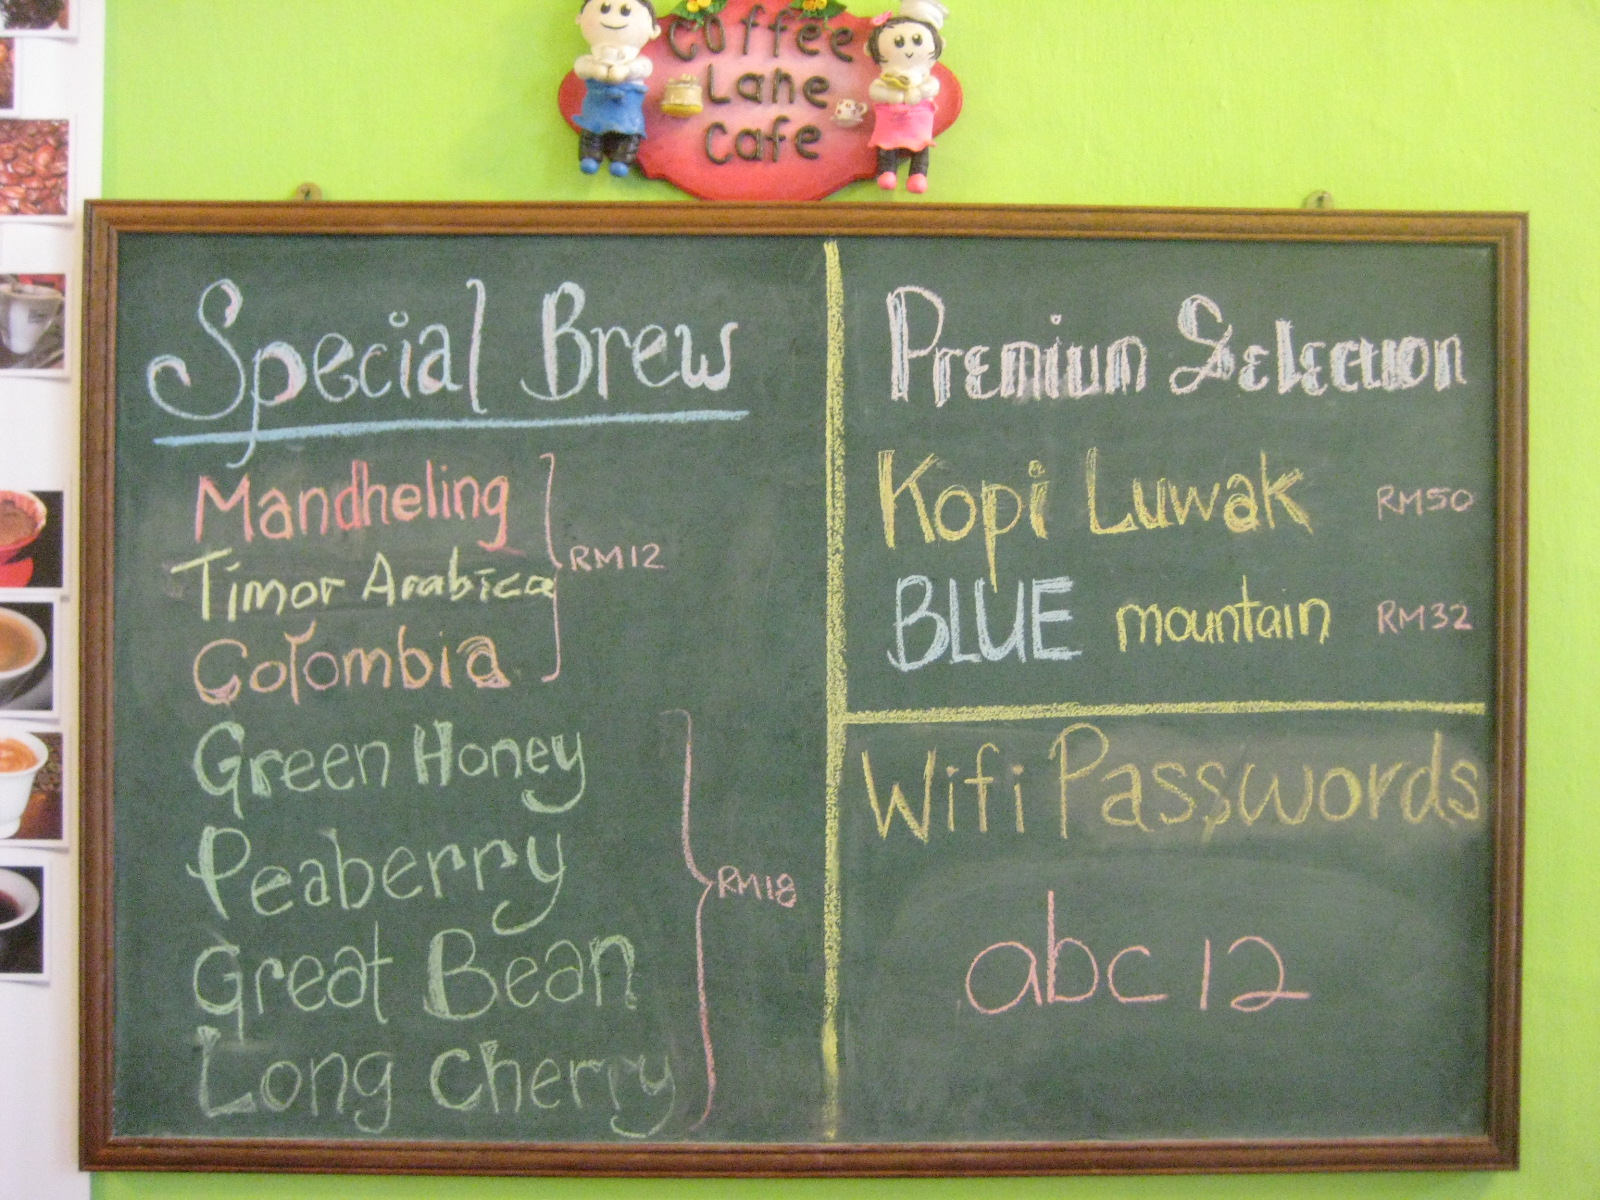 Coffee
Lane
Cafe
Special Brew
Mandheling
Timor Arabica
Colombia
RM12
Green Honey
Peaberry
Great Bean
Long Cherry
RM18
Premium Selection
Kopi Luwak RM50
BLUE mountain RM32
Wifi Passwords
abc12